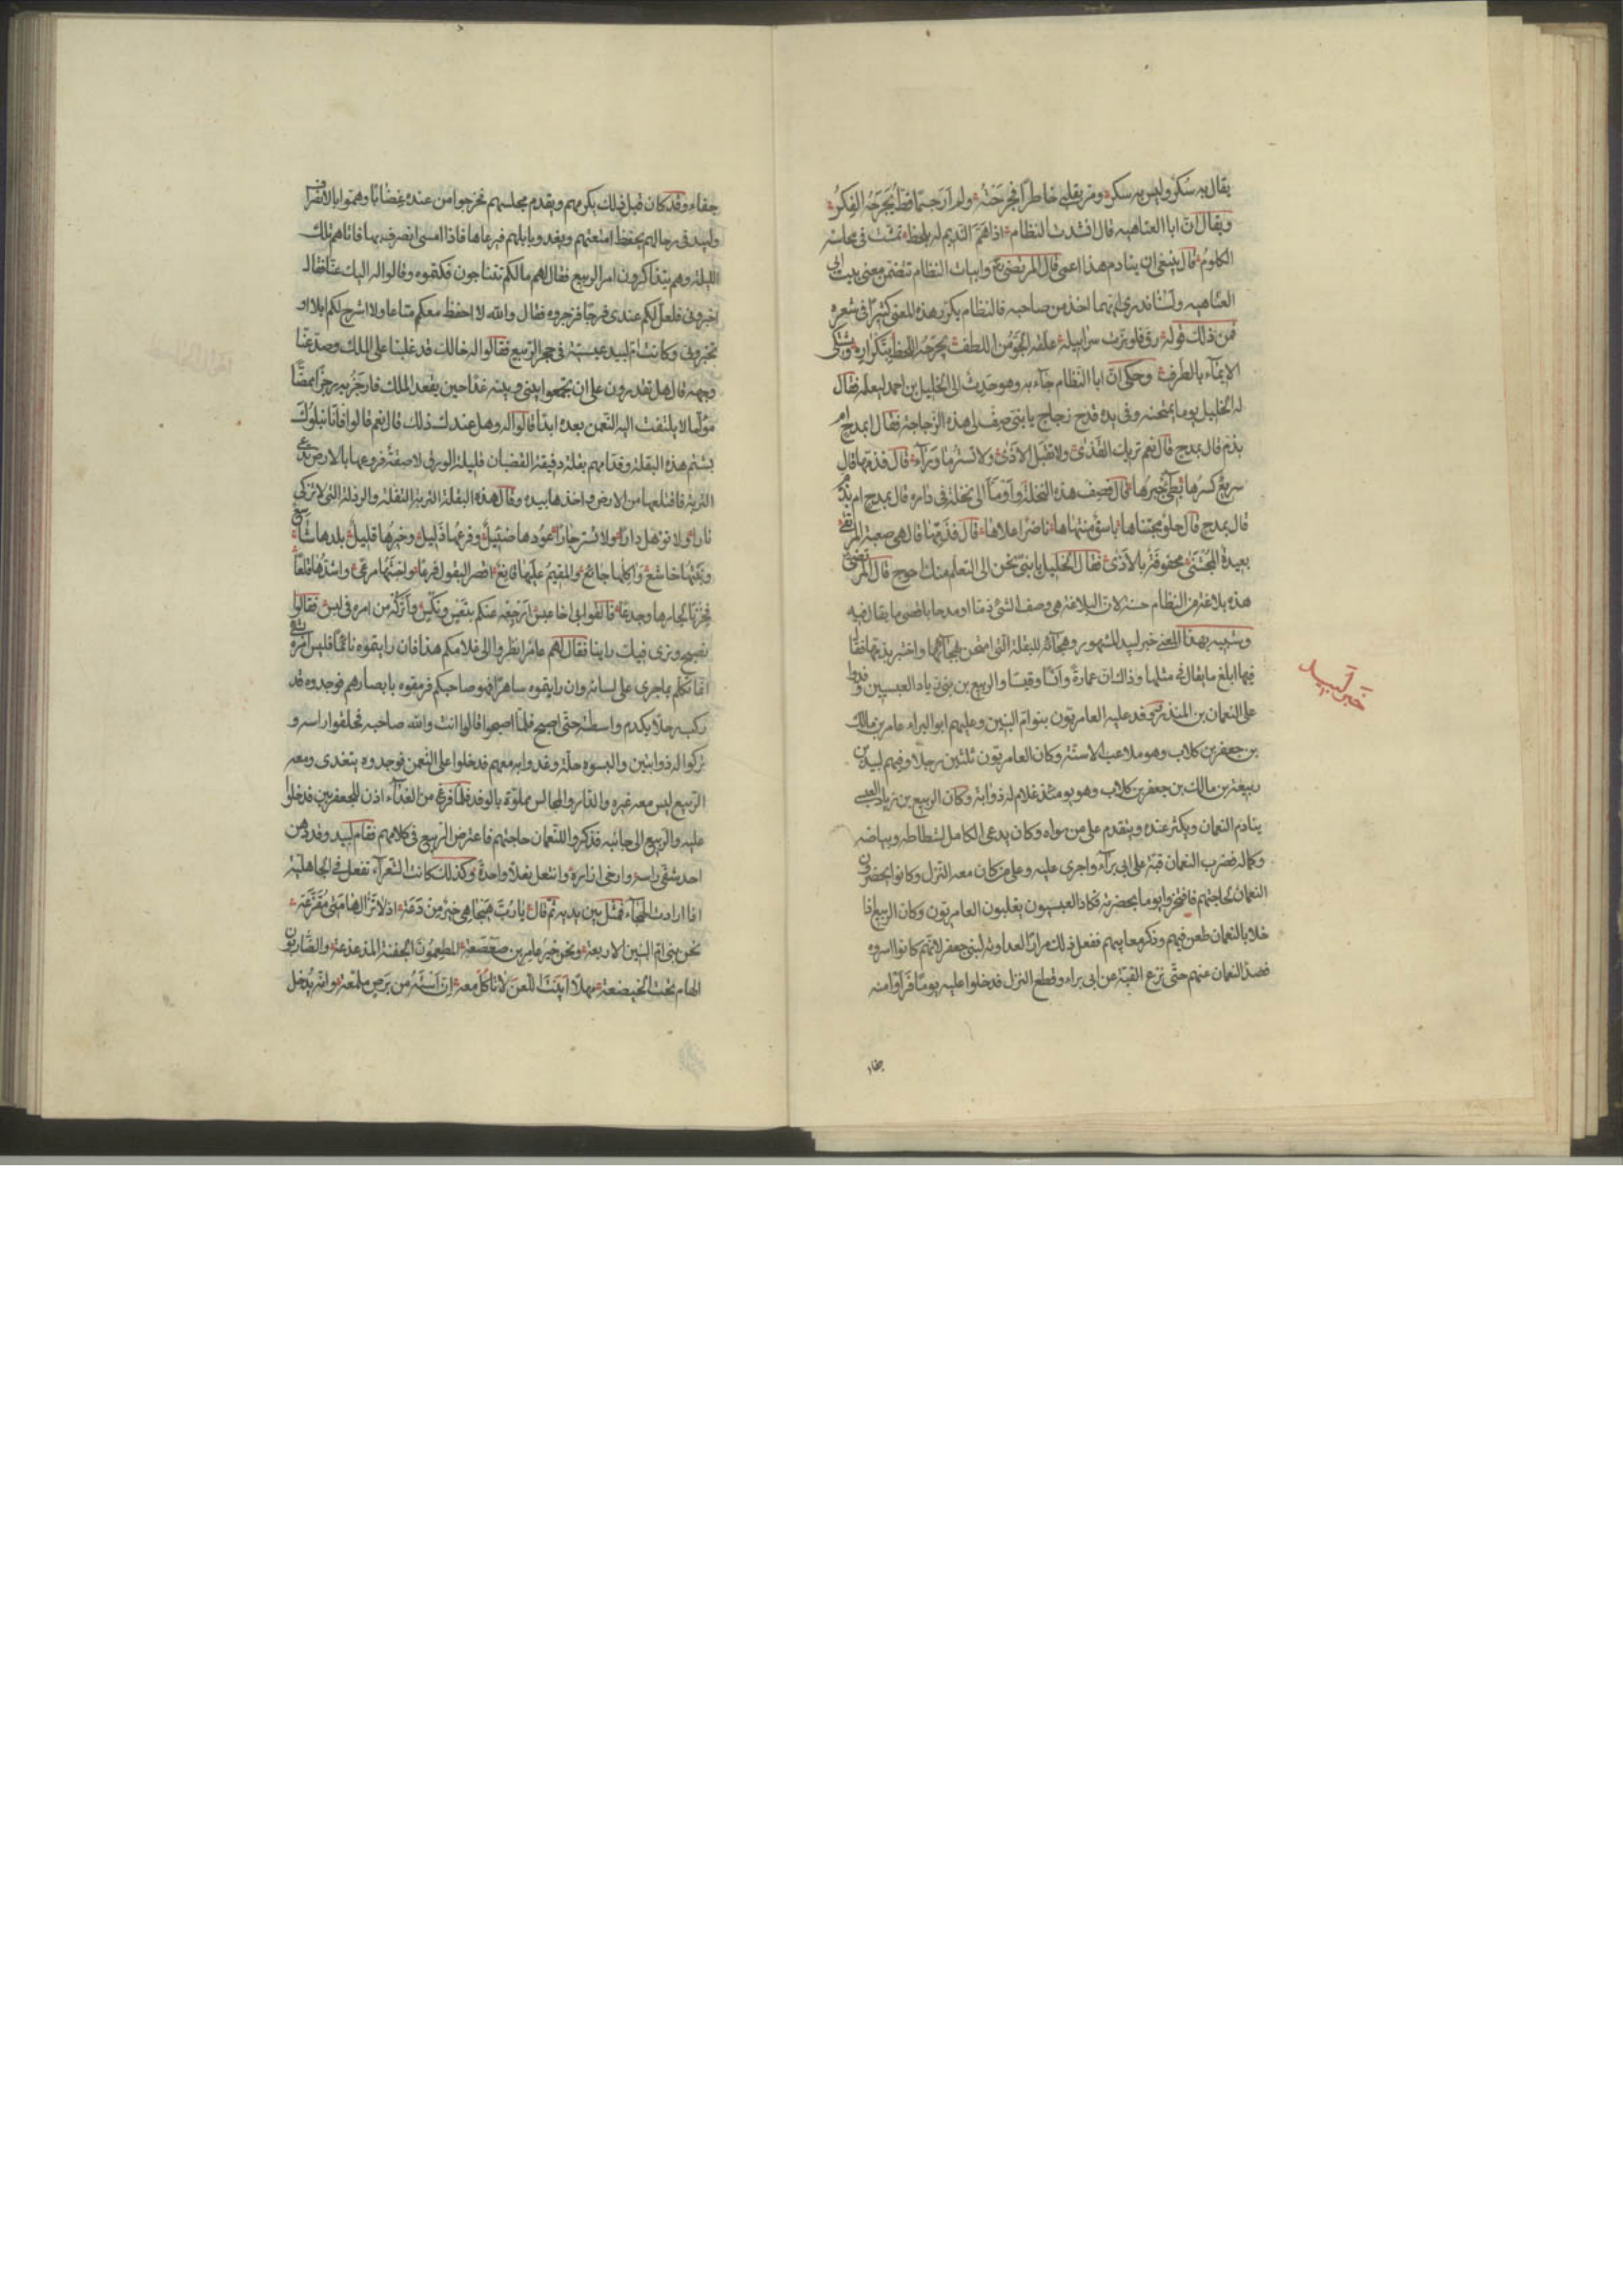 يقال به سُكرٌ وليس به سكرُ ومرّ بقلبي خاطرًا فجرحَتُه ولم ار جسمًا قطّ يجرحه الفِكرُ
ويقال انّ ابا العتاهيه قال انشدت النظام اذا همّ النديم له بلحظ تمشّت في محاسنه
الكلومُ قال ينبغي ان ينادم هذا اعمى قال المرتضى وابيات النظام تتضمن معنى بيت ابي
العتاهيه ولسنا ندري ايهما اخذ من صاحبه فالنظام يكرر هذه المعنى كثيرًا في شعره
فمن ذلك قوله رقّ فلو بزّت سرابيله علّقه الجوّ من اللطف يجرحه اللحظ بتكراره ويشتكي
الايماء بالطرف وحكى انّ ابا النظام جاء به وهو حديث الى الخليل بن احمد ليعلمه فقال
له الخليل يوما يمتحنه وفي يده قدح زجاج يا بني صف لي هذه الزجاجة فقال ابمدح ام
بذم قال بمدح قال نعم تريك القذى ولا تقبل الاذى ولا تستر ما وراء قال فذمها قال
سريع كسرها بطيء جبرها قال فصف هذه النخلة واومأ الى نخلة في داره قال بمدح ام بذم
قال بمدح قال حلو مجتناها باسق منتهاها ناضر اعلاها قال فذمها قال هي صعبة المرتقى
بعيدة المجتنى محفوفة بالاذى فقال الخليل يا بنيّ نحن الى التعلم منك احوج قال المرتضى
هذه بلاغة من النظام حسنة لان البلاغة هي وصف الشئ ذمّا او مدحا باقصى ما يقال فيه
وشبيه بهذا المعنى خبر لبيد المشهور وهجآئه للبقلة التي امتحن بهجائها واختبر بذمها فقال
فيها ابلغ ما يقال في مثلها وذلك انّ عمارة وانسًا وقيسًا والربيع بن زياد العبسيين وفدوا
على النعمان بن المنذر ووفد عليه العامريون بنو امّ البنين وعليهم ابو البراء عامر بن مالك
بن جعفر بن كلاب وهو ملاعب الاسنّة وكان العامريون ثلثين رجلا وفيهم لبيد بن
ربيعة بن مالك بن جعفر بن كلاب وهو يومئذ غلام له ذوابة وكان الربيع بن زياد العبسي
ينادم النعمان ويكثر عنده ويتقدم على من سواه وكان يدعى الكامل لشطاطه وبياضه
وكماله فضرب النعمان قبّة على ابي براء واجرى عليه وعلى من كان معه النزل وكانوا يحضرون
النعمان لحاجتهم فافتخروا يوما بحضرته فكاد العبسيون يغلبون العامريون وكان الربيع اذا
خلا بالنعمان طعن فيهم وذكر معايبهم ففعل ذلك مرارًا لعداوته لبني جعفر لانهم كانوا اسروه
فصدّ النعمان عنهم حتى نزع القبة عن ابي براء وقطع النزل فدخلوا عليه يومًا فرأوا منه
جفاء
خبر لبيد
جفاء وقد كان قبل ذلك يكرمهم ويقدم مجلسهم فخرجوا من عنده غضابًا وهمّوا بالانصراف
ولبيد في رحالهم يحفظ امتعتهم ويغدو بابلهم فيرعاها فاذا امسى انصرف بها فاتاهم تلك
الليلة وهم يتذاكرون امر الربيع فقال لهم ما لكم تتناجون فكتموه وقالوا له اليك عنا فقال
اخبروني فلعلّ لكم عندي فرجًا فزجروه فقال والله لا احفظ معكم متاعا ولا اسرح لكم ابلا او
تخبروني وكانت امّ لبيد عبسيّة في حجر الربيع فقالوا له خالك قد غلبنا على الملك وصدّ عنّا
وجهه قال هل تقدرون على ان تجمعوا بيني وبينه غدًا حين يقعد الملك فارجز به رجزًا ممضًّا
مؤلما لا يلتفت اليه النعمن بعده ابدًا قالوا له وهل عندك ذلك قال نعم قالوا فانّا نبلوك
بشتم هذه البقلة وقدامهم بقلة دقيقة القضبان قليلة الورق لاصقة فروعها بالارض تدعى
التربة فاقتلعها من الارض واخذها بيده وقال هذه البقلة التربة التفلة والرذلة التي لا تذكي
نارا ولا تؤهل دارًا ولا تستر جارًا عودها ضئيل وفرعها ذليل وخيرها قليل بلدها شاسع
ونبتها خاشع وآكلها جائع والمقيم عليها قانع اقصر البقول فرعًا واخبثها مرعى واشدّها قلعًا
فحزبًا لجارها وجدعًا فالقوا بي اخا عبس ارجعه عنكم بتعس ونكس واتركه من امره في لبس فقالوا
نصبح ونرى فيك راينا فقال لهم عامر انظروا الى غلامكم هذا فان رايتموه نائمًا فليس امره بشيء
انما تكلم بما جرى على لسانه وان رايتموه ساهرًا فهو صاحبكم فرمقوه بابصارهم فوجدوه قد
ركب رحلا يكدم واسطته حتى اصبح فلمّا اصبحوا قالوا انت والله صاحبه فحلقوا راسه و
تركوا له ذوابتين والبسوه حلّة وغدوا به معهم فدخلوا على النعمن فوجدوه يتغدى ومعه
الربيع ليس معه غيره والدار والمجالس مملوّة بالوفد فلما فرغ من الغدآء اذن للجعفريين فدخلوا
عليه والربيع الى جانبه فذكروا للنعمان حاجتهم فاعترض الربيع في كلامهم فقام لبيد وقد دهن
احد شقي راسه وارخى ازاره وانتعل نعلا واحدة وكذلك كانت الشعرآء تفعل في الجاهلية
اذا ارادت الهجآء فمثل بين يديه ثم قال يا ربّ هيجا هي خير من دعة اذ لا تزال هامتي مقزّعة
نحن بني امّ البنين الاربعة ونحن خير عامر بن صعصعة المطعمون الجفنة المذعذعة والضاربون
الهام تحت الخيضعة مهلا ابيت اللّعن لا تأكل معه انّ استه من برص ملمّعة وانه يدخل